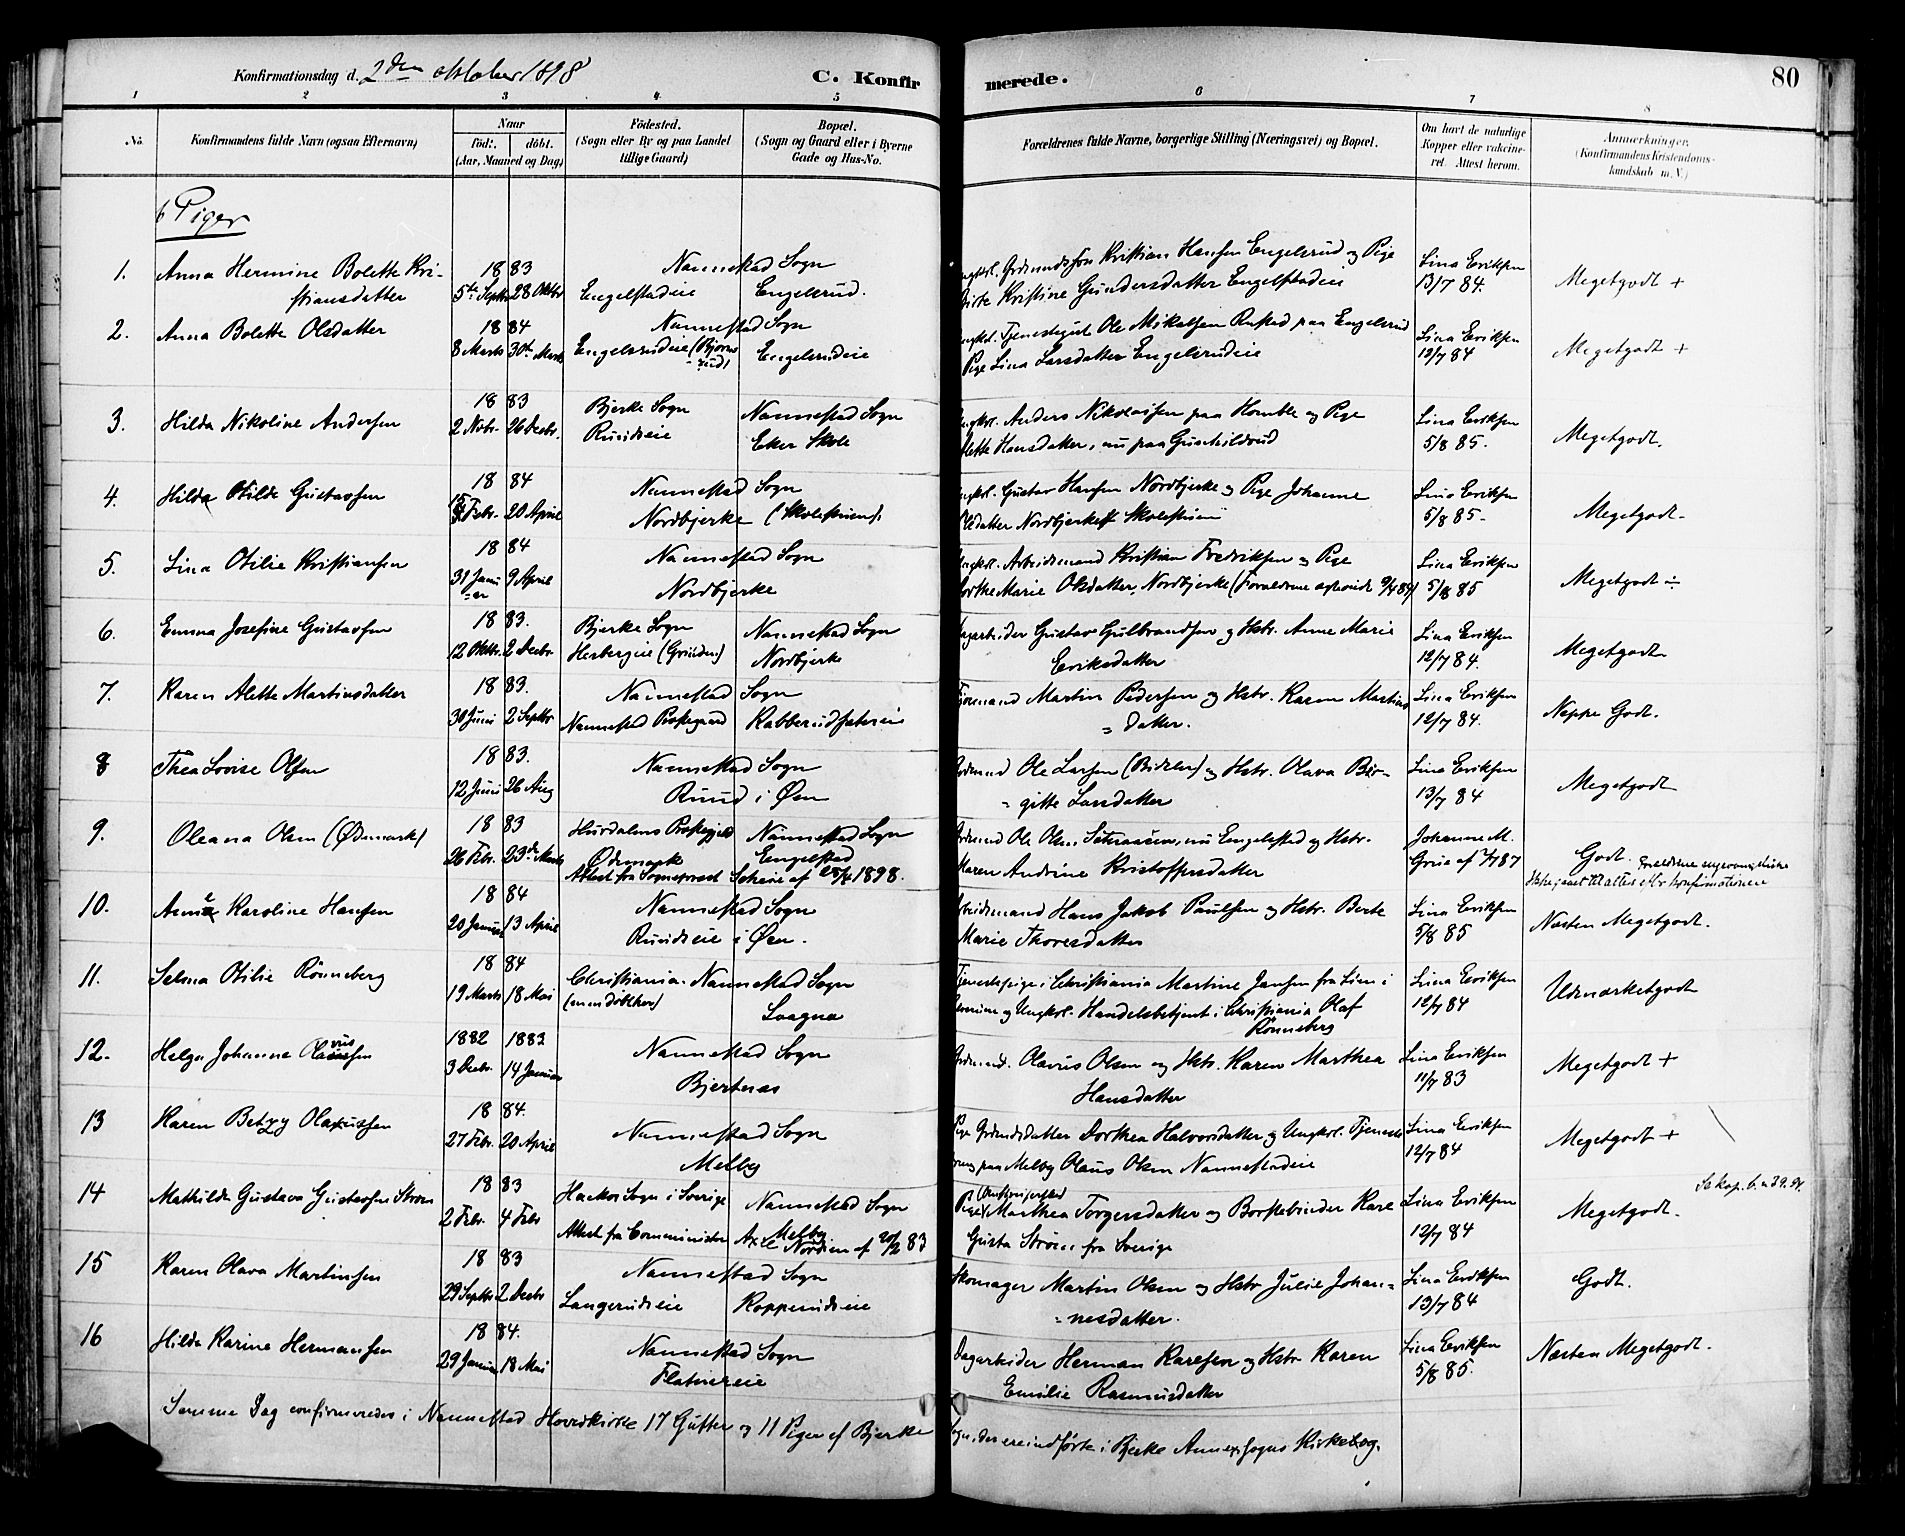 Konfirmationsdag d. 2den oktober 1898 C. Konfirmerede. 80
1 2 3 4 5 6 7 8
No. Konfirmandens fulde Navn (ogsaa Efternavn) Naar født: døbt. (Aar, Maaned og Dag) Fødested. (Sogn eller By og paa Landet tillige Gaard) Bopæl. (Sogn og Gaard eller i Byerne Gade og Hus-No. Forældrenes fulde Navne, borgerlige Stilling (Næringsvei) og Bopæl. Om havt de naturlige Kopper eller vakcineret. Attest herom. Anmærkninger. (Konfirmandens Kristendomskundskab m. V.)
Piger
1. Anna Hermine Bolette Kri- 18 83 Nannestad Sogn Ungkrl. Grdmandssøn Kristian Hansen Engelsrud og Pige Lina Eriksen
stiansdatter 5te Septbr 28 Oktbr Engelstadeie Engelsrud. Kristine Gundersdatter Engelstadeie 13/7 84. Megetgodt +
2. Anna Bolette Olsdatter 18 84 Nannestad Sogn Ungkrl. Tjenestegut Ole Mikalsen Rustad paa Engelsrud Lina Eriksen
8 Marts 30te Marts Engelsrudeie (Bjørnsrud) Engelsrudeie Pige Lina Larsdatter Engelsrudeie 12/7 84 Megetgodt +
3. Hilda Nikoline Andersen 18 83 Bjerke Sogn Nannestad Sogn Ungkrl. Anders Nikolaisen paa Homble og Pige Lina Eriksen
2 Nvbr. 26 Decbr. Ruudseie Eker Skole Hansdatter, nu paa Gunhildrud 5/8 85. Megetgodt.
4. Hilda Otilde Gustavsen 18 84 Nannestad Sogn Ungkrl. Gustav Hansen Nordbjerke og Pige Johanne Lina Eriksen
15 Febr. 20 April Nordbjerke (Skolestuen). Olsdatter Nordbjerke Skolestuen 5/8 85. Megetgodt.
5. Lina Otilie Kristiansen 18 84 Nannestad Sogn Ungkrl. Arbeidsmand Kristian Fredriksen og Pige Lina Eriksen
31 Janu=ar 9 April Nordbjerke Dorthe Marie Olsdatter, Nordbjerke (Forældrene egteviede 9/4 84) 5/8 85 Megetgodt ÷
6. Emma Josefine Gustavsen 18 83. Bjerke Sogn Nannestad Sogn Dagarbeider Gustav Gulbrandsen og Hstr. Anne Marie Lina Eriksen
12 Oktbr. 2 Decbr. Herbergeie (Grinden) Nordbjerke Eriksdatter 12/7 84. Megetgodt
7. Karen Alette Martinsdatter 18 83. Nannestad Sogn Martin Pedersen og Hstr. Karen Martins Lina Eriksen
30 Juni 2 Septbr Nannestad Prestegaard Rabberud =datter. 12/7 84. Neppe Godt.
8 Thea Lovise Olsen 18 83. Nannestad Sogn Grdmand Ole Larsen og Hstr. Olava Bir- Lina Eriksen
12 Juni 26 Aug Ruud i Øen =gitte Larsdatter 13/7 84 Megetgodt
9. Oleana Olsen (Ødemark) 18 83 Hurdalens Prestegjeld Nannestad Sogn Grdmand Ole Olsen Sætraaen, nu Engelstad og Hstr. Johanne M.
26 Febr. 23de Marts Ødemark Engelstad Maren Andrine Kristoffersdatter Grua af 7/7 87 Godt.
Attest fra Sogneprest Scheie af 1898. konfirmationen
10. Anne Karoline Hansen 18 84 Nannestad Sogn Arbeidsmand Hans Jakob Paulsen og Hstr. Berte Lina Eriksen
20 Januar 13 April Ruudseie i Øen. Marie Thoresdatter 5/8 85 Næsten Megetgodt.
11. Selma Otilie Rönneberg 18 84 Christiania. Nannestad Sogn Tjenestepige i Christiania Martine Jansen fra Lien i Lina Eriksen
19 Marts 18 Mai og Ungkrl. Handelsbetjent i Christiania Olaf Rönneberg 12/7 84 Udmærketgodt
12. Helga Johanne Olavussen 1882 1883 Nannestad Sogn Grdmand. Olavus Olsen og Hstr. Karen Marthea Lina Eriksen
3 Decbr. 14 Januar Bjertnæs Hansdatter 11/7 83 Megetgodt +
13 Karen Betzy Olaussen 18 84. Nannestad Sogn Pige Grdmdsdatter Dorthea Halvorsdatter og Ungkrl. Tjeneste Lina Eriksen
27 Febr. 20 April Melby dreng paa Melby Olaus Olsen Nannestadeie 12/7 84 Megetgodt +
14 Mathilde Gustava Gustavsen Strøm 18 83 Sogn i Sverige Nannestad Sogn Pige Marthea Torgersdatter og Børstebinder Kare Lina Eriksen
2 Febr. 4 Febr Melby Gusta Strøm fra Sverige 12/7 84 Megetgodt.
Attest fra Comminister Axel Nordien af 20/2 83
15 Karen Olava Martinsen 18 83 Nannestad Sogn Skomager Martin Olsen og Hstr Julie Johan= Lina Eriksen
29 Septbr 2 Decbr Langerudseie Kopperudseie =nesdatter. 13/7 84 Godt.
16 Hilda Karine Hermansen 18 84. Nannestad Sogn Dagarbeider Herman Karesen og Hstr Karen Lina Eriksen
29 Januar 18 Mai Flatnereie Emilie Rasmusdatter 5/8 85. Næsten Megetgodt.
Samme Dag confirmeredes i Nannestad Hovedkirke 17 Gutter og 11 Piger af Bjerke Sogn, der ere indførte i Bjerke Annexsogns Kirkebog.